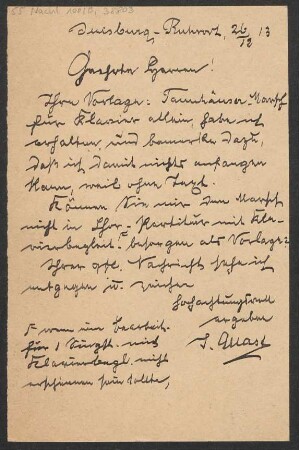 Duisburg-Ruhrort, 26/12 13
Geehrte Herren!
Ihre Vorlage: Tannhäuser-Marsch
für Klavier allein, habe ich
erhalten, und bemerke dazu,
daß ich damit nichts anfangen
kann, weil ohne Text.
Können Sie mir den Marsch
nicht in Chor-Partitur mit Kla-
vierbegleit. besorgen als Vorlage?
Ihrer gfl. Nachricht sehe ich
entgegen u. zeichne
Hochachtungsvoll
ergeben
wenn eine bearbeit.
für 1 Singst. mit
Klavierbegl. nicht
erschienen sein sollte,